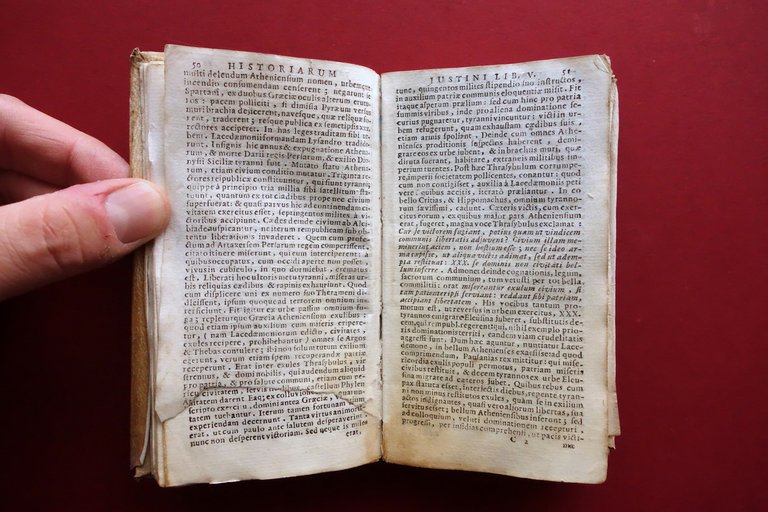 50 HISTORIARUM
multi delendum Atheniensium nomen, urbemque
incendio consumendam censerent; negarunt se
Spartani, ex duobus Græciæ oculis alterum eruturos
: pacem polliciti, si dimissa Pyræum versus
muri brachia dejicerent, navesque, quæ reliquæ forent,
traderent; resque publica ex semetipsis xxx.
rectores acciperet. In has leges traditam sibi urbem,
Lacedæmonii formandam Lysandro tradiderunt.
Insignis hic annus & expugnatione Athenarum,
& morte Darii regis Persarum, & exilio Dionysii
Siciliæ tyranni fuit. Mutato statu Athenarum,
etiam civium conditio mutatur. Triginta rectores
reipublicæ constituuntur, qui fiunt tyranni:
quippe à principio tria millia sibi satellitum statuunt,
quantum ex tot cladibus prope nec civium
superfuerat: & quasi parvus hic ad continendam civitatem
exercitus esset, septingentos milites à victoribus
accipiunt. Cædes deinde civium ab Alcibiade
auspicantur, ne iterum rempublicam sub
obtentu liberationis invaderet. Quem cum profectum
ad Artaxersem Persarum regem comperissent,
citato itinere miserunt, qui eum interciperent: à
quibus occupatus, cum occidi aperte non posset,
vivus in cubiculo, in quo dormiebat, crematus
est. Liberati hoc ultoris metu tyranni, miseras urbis
reliquias cædibus & rapinis exhauriunt. Quod
cum displicere uni ex numero suo Therameni didicissent,
ipsum quoque ad terrorem omnium interficiunt.
Fit igitur ex urbe passim omnium fuga;
repleturque Græcia Atheniensium exulibus:
quod etiam ipsum auxilium cum miseris eriperetur,
( nam Lacedæmoniorum edicto, civitates,
exules recipere, prohibebantur) omnes se Argos
& Thebas contulere; ibi non solum tutum exilium
egerunt, verum etiam spem recuperandæ patriæ
receperunt. Erat inter exules Thrasybulus, vir
strenuus, & domi nobilis, qui audendum aliquid
pro patria, & pro salute communi, etiam cum periculo
civitatem darent. Eaq; ex colluvione
tatem tuebantur. Iterum tamen fortunam
experiendam decernunt. Tanta virtus animorum
erat, ut cum paulo ante salutem desperaverint,
nunc non desperent victoriam. Sed neque is miles
erat,
JUSTINI LIB. V. 51
tunc, quingentos milites stipendio suo instructos,
in auxilium patriæ communis eloquentiæ misit. Fit
itaque asperum prælium: sed cum hinc pro patria
summis viribus, inde pro aliena dominatione securius
pugnaretur, tyranni vincuntur: victi in urbem
refugerunt, quam exhaustam cædibus suis,
etiam armis spoliant. Deinde cum omnes Athenienses
proditionis suspectos haberent, demigrare
eos ex urbe jubent; & in brachiis muri, quæ
diruta fuerant, habitare, extraneis militibus imperium
tuentes. Post hæc Thrasybulum corrumpere,
imperii societatem pollicentes, conantur: quod
cum non contigisset, auxilia à Lacedæmoniis petivere
: quibus accitis, iterato præliantur. In eo
bello Critias, & Hippomachus, omnium tyrannorum
sævissimi, cadunt. Cæteris victis, cum exercitus
eorum, ex quibus major pars Atheniensium
erat, fugeret, magna voce Thrasybulus exclamat:
Cur se victorem fugiant, potius quam ut vindicem
communis libertatis adjuvent? Civium illam meminerint
aciem, non hostium esse; nec se ideo arma
cepisse, ut aliqua victis adimat, sed ut adempta
restituat: XXX. se dominis non civitati bellum
inferre. Admonet deinde cognationis, legum,
sacrorum communium, tum vetusti per tot bella
commilitii: orat misereantur exulum civium, si
tam patienter ipsi serviant: reddant sibi patriam,
accipiant libertatem. His vocibus tantum promotum
est, ut reversus in urbem exercitus, XXX.
tyrannos emigrare Eleusina juberet, substitutis decem,
qui rempubl. regerent: qui, nihil exemplo prioris
dominationis territi, eandem viam crudelitatis
aggressi sunt. Dum hæc aguntur, nuntiatur Lacedæmone,
in bellum Athenienses exarsisse: ad quod
comprimendum, Pausanias rex mittitur: qui misericordia
exulis populi permotus, patriam miseris
civibus restituit, & decem tyrannos ex urbe Eleusina
migrare ad cæteros jubet. Quibus rebus cum
pax statuta esset, interjectis diebus, repente tyranni
non minus restitutos exules, quam se in exilium
actos indignantes, quasi vero aliorum libertas, sua
servitus esset; bellum Atheniensibus inferunt; sed
ad colloquium, veluti dominationem recepturi,
progressi, per insidias comprehensi, ut pacis victi-
C 2 mæ